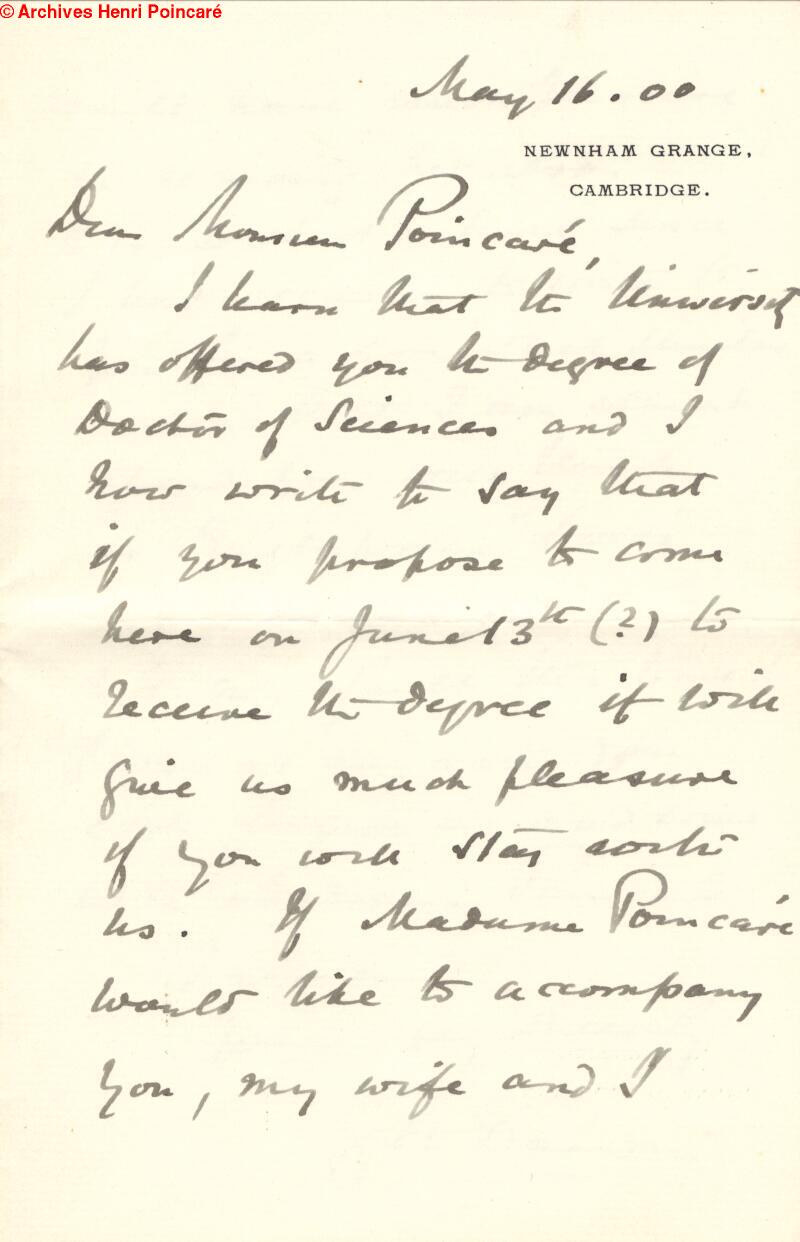 © Archives Henri Poincaré
May 16.00
NEWNHAM GRANGE,
CAMBRIDGE.
Dear Monsieur Poincaré,
I learn that the University
has offered you the degree of
Doctor of Sciences and I
now write to say that
if you propose to come
here on June 13th (?) to
receive the degree it will
give us much pleasure
if you will stay with
us. If Madame Poincaré
would like to accompany
you, my wife and I